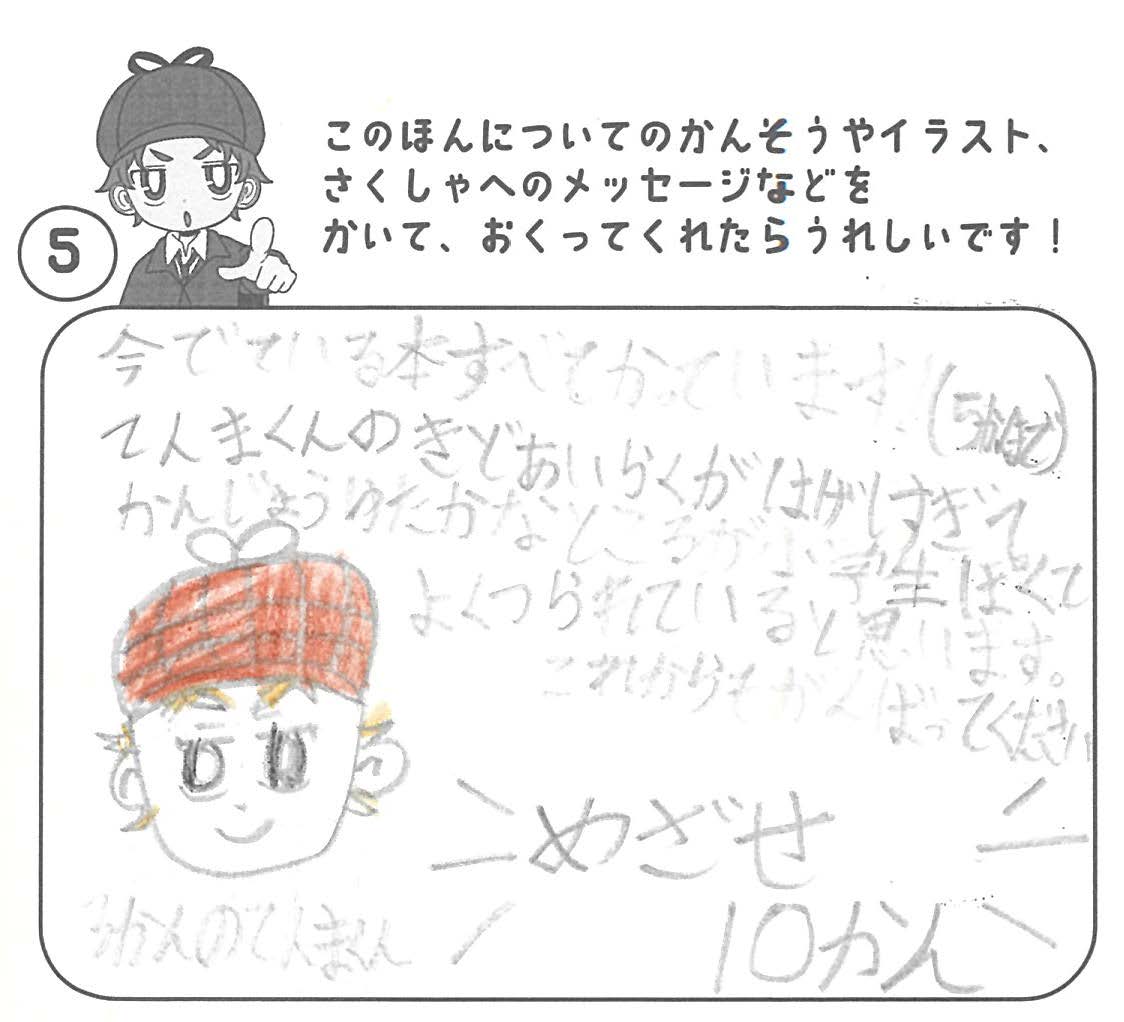 5
このほんについてのかんそうやイラスト、
さくしゃへのメッセージなどを
かいて、おくってくれたらうれしいです！
今でている本すべてかっています！(5かんまで)
てんまくんのきどあいらくがはげしすぎて
かんじょうゆたかなところが小学生ぽくて
よくつられていると思います。
これからもがんばってください
めざせ
10かん
かんのてんまくん